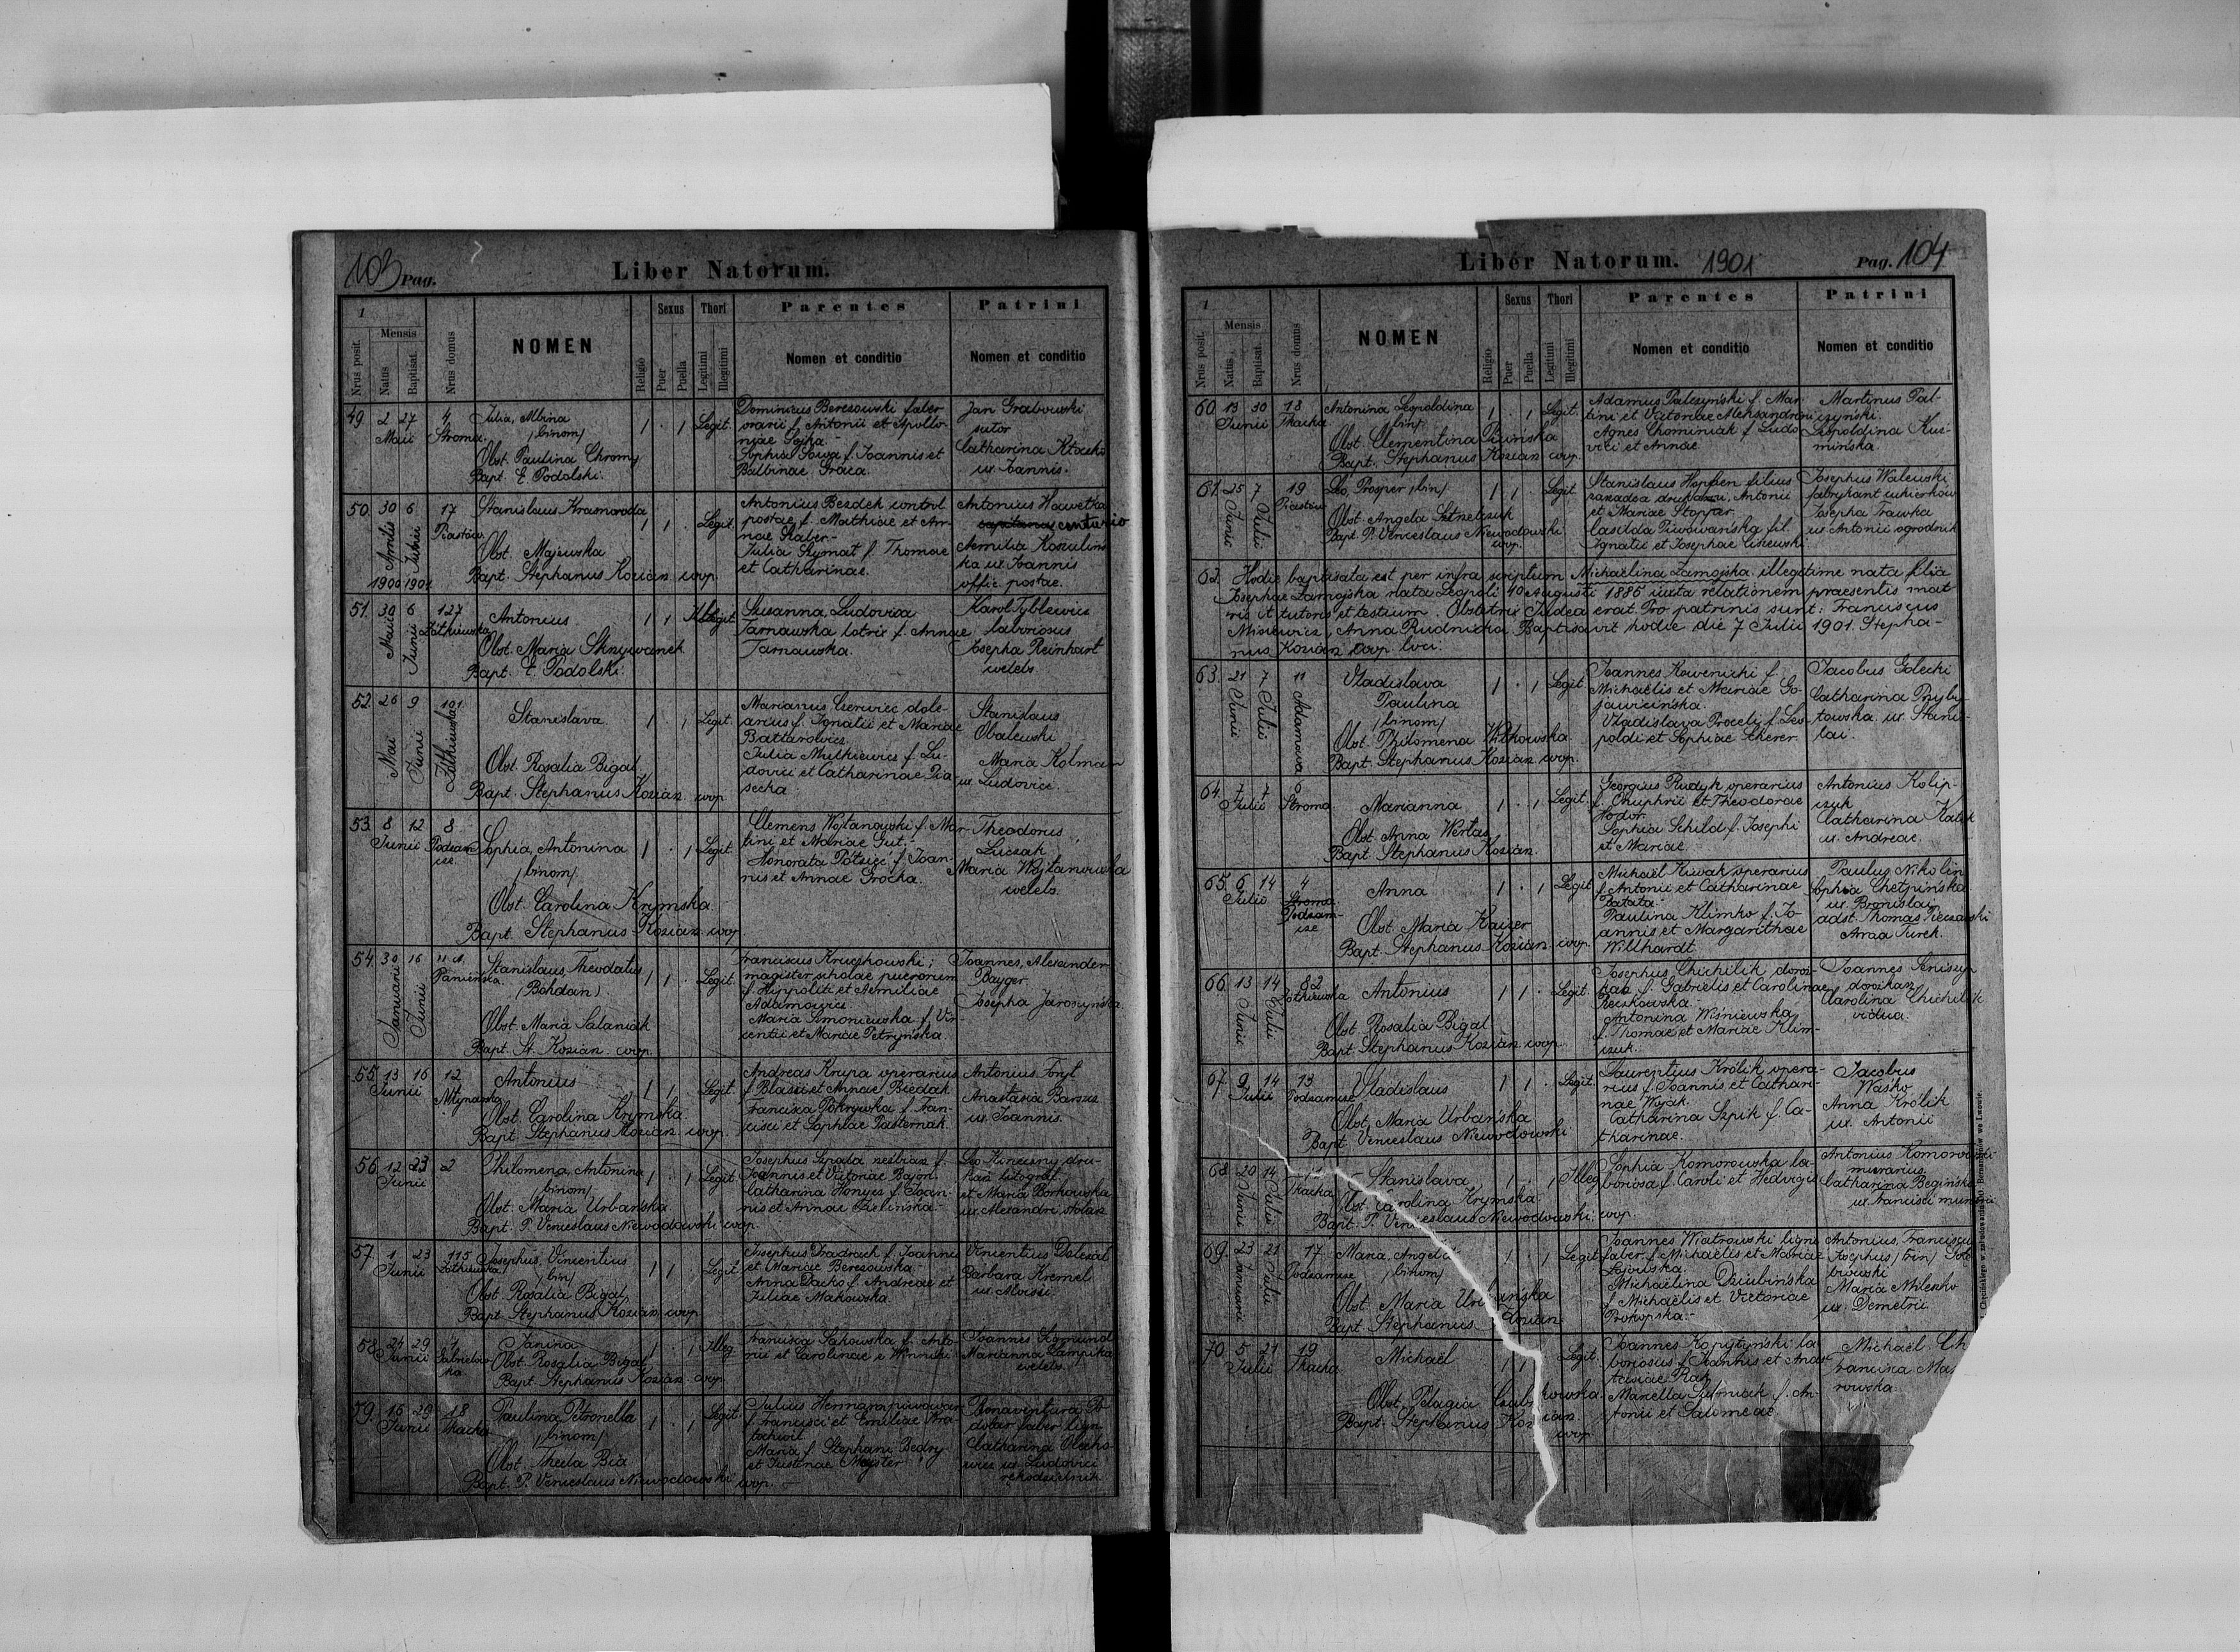 103 Pag.
Liber Natorum.
1
Nrus posit.
Mensis
Natus
Baptisat.
Nrus domus
NOMEN
Religio
Sexus
Puer
Puella
Thori
Legitimi
Illegitimi
Parentes
Nomen et conditio
Patrini
Nomen et conditio
49. 2 27 Maii
4 Stroma
Julia, Albina
/binom/
Obst. Paulina Chromy
Bapt. E. Podolski.
1 . 1 Legit.
Dominicus Berezowski
f. Antonii et Apollo-
niae Sojka.-
Sophia Sowa f. Joannis et
Balbinae Graca.
Jan Grabowski
sutor
Catharina
ux. Joannis.
50. 30 Aprilis 1900 6 Junii 1901
17 Piastów
Stanislaus
Obst. Majewska
Bapt. Stephanus Kozian coop.
1 1 . Legit.
Antonius Bezdek control.
postae f. Mathiae et An-
nae Haber.-
Julia Szymat f. Thomae
et Catharinae.
Antonius Hawetka
centurio
Aemilia
ka ux. Joannis
offic. postae.
51. 30 Maii 6 Junii
127 Żółkiewska
Antonius
Obst. Maria
Bapt. E. Podolski.
1 1 Illegit.
Susanna Ludovica
Tarnawska f. Annae
Tarnawska.
Karol
laboriosus
Josepha Reinhart
coelebs
52. 26 Maii 9 Junii
101 Żółkiewska
Stanislava
Obst. Rosalia Bigal
Bapt. Stephanus Kozian coop.
1 . 1 Legit.
Marianus Czerwiec dole-
arius f. Ignatii et Mariae
Julia f. Lu-
dovici et Catharinae Pia-
secka
Stanislaus
Obalewski
Maria Kolman
ux. Ludovici.
53. 8 12 Junii
8 Podzam-
cze
Sophia, Antonina
/binom/
Obst. Carolina Krymska
Bapt. Stephanus Kozian coop.
1 . 1 Legit.
Clemens Wojtanowski f. Mar-
tini et Mariae Gut.-
Honorata f. Joan-
nis et Annae Grocka.
Theodorus
Luczak
Maria Wojtanowska
coelebs.
54. 30 Januarii 16 Junii
11 a. Panieńska
Stanislaus, Theodatus
(Bohdan)
Obst. Maria Salaniak
Bapt. St. Kozian coop.
1 1 . Legit.
Franciscus
magister scholae puerorum
f. Hippoliti et Aemiliae
Adamowicz.
Maria Simoniewska f. Vin-
centii et Mariae Petryńska
Joannes, Alexander
Bayger
Josepha Jaroszyńska
55. 13 16 Junii
12 Młynarska
Antonius
Obst. Carolina Krymska
Bapt. Stephanus Kozian coop.
1 1 Legit.
Andreas Krupa operarius
f. Blasii et Annae Biedak
Francisca Pokrywka f. Fran-
cisci et Sophiae Pasternak.
Antonius Foryl
Anastasia Barszcz
ux. Joannis.
56. 12 23 Junii
2
Philomena, Antonina
/binom/
Obst. Maria Urbańska
Bapt. P. Venceslaus Niewodowski coop.
1 . 1 Legit.
Josephus Szpala f.
Joannis et Victoriae Bajon
Catharina f. Joan-
nis et Annae
Leo dru-
karz litograf.
et Maria Borkowska
ux. Alexandri stolarz
57. 1 23 Junii
115 Żółkiewska
Josephus, Vincentius
/bin/
Obst. Rosalia Bigal
Bapt. Stephanus Kozian coop.
1 1 . Legit.
Josephus f. Joannis
et Mariae Berezowska.-
Anna Dacko f. Andreae et
Juliae Makowska.
Vincentius Dolezal
Barbara Kremel
ux. Aloisii.
58. 24 29 Junii
1 Gabrielów-
ka
Janina
Obst. Rosalia Bigal
Bapt. Stephanus Kozian coop.
1 . 1 Illeg.
Francisca f. Anto-
nii et Carolinae e Winniki
Joannes
Marianna
coelebs.
59. 16 29 Junii
18 Tkacka
Paulina Petronella
/binom/
Obst. Thecla Bia
Bapt. P. Venceslaus Niewodowski coop.
1 . 1 Legit.
Julius Hermann piwowar
f. Francisci et Emiliae
Maria f. Stephani Bedry
et Justinae Majster
Bonaventura
faber lign.
Catharina
ux. Ludovici
Liber Natorum. 1901 Pag. 104
1
Nrus posit.
Mensis
Natus
Baptisat.
Nrus domus
NOMEN
Religio
Sexus
Puer
Puella
Thori
Legitimi
Illegitimi
Parentes
Nomen et conditio
Patrini
Nomen et conditio
60. 13 30 Junii
18 Tkacka
Antonina Leopoldina
/bin/
Obst. Clementina
Bapt. Stephanus Kozian coop.
1 . 1 Legit.
Adamus Palczyński f. Mar-
tini et Victoriae
Agnes Chominiak f. Ludo-
vici et Annae
Martinus Pal-
czyński.
Leopoldina Kuź-
mińska
61. 25 Junii 7 Julii
19 Piastów
Leo, Prosper /bin/
Obst. Angela
Bapt. P. Venceslaus Niewodowski
coop.
1 1 Legit.
Stanislaus Hopfen filius
Antonii
et Mariae Stopper.
Casilda Piwowańska fil.
Ignatii et Josephae
Josephus Walewski
fabrykant cukierków
Josepha
ux Antonii ogrodnik
62. Hodie baptisata est per infra scriptum Michaëlina Zamojska illegitime nata filia
Josephae Zamojska nata Leopoli 10 Augusti 1886 iuxta relationem praesentis mat-
ris et tutoris et testium. Obstetrix Judea erat. Pro patrinis sunt: Franciscus
Misiewicz, Anna Rudnicka. Baptisavit hodie die 7 Julii 1901. Stepha-
nus Kozian coop. loci.
63. 21 Junii 7 Julii
11 Adamowa
Vladislava
Paulina
/binom/
Obst. Philomena Witkowska
Bapt. Stephanus Kozian coop.
1 . 1 Legit.
Joannes Kowenicki f.
Michaëlis et Mariae Go-
Vladislava f. Leo-
poldi et Sophiae Scherer
Jacobus Golecki
Catharina Przyby-
towska ux. Stanis-
lai.
64. 7 7 Julii
6 Stroma
Marianna
Obst. Anna Wertas
Bapt. Stephanus Kozian.
1 . 1 Legit.
Georgius Rudyk operarius
f. Onuphrii et Theodorae
Hodor.
Sophia Schild f. Josephi
et Mariae.
Antonius Kolip-
czuk
Catharina
ux. Andreae.
65. 6 14 Julii
4 Stroma
Podzam-
cze
Anna
Obst. Maria Kaizer
Bapt. Stephanus Kozian coop.
1 . 1 Legit.
Michaël operarius
f. Antonii et Catharinae
Batata.-
Paulina Klimko f. Jo-
annis et Margarithae
Willhardt.
Paulus Nikolin
Sophia Chetpińska
ux. Bronislai
adst. Thomas
Anna Turek.
66. 13 Junii 14 Julii
82 Żółkiewska
Antonius
Obst. Rosalia Bigal
Bapt. Stephanus Kozian coop.
1 1 . Legit.
Josephus Chichilik doroż-
karz f. Gabrielis et Carolinae
Antonina Wiśniewska
f. Thomae et Mariae Klim-
czuk.
Joannes
dorożkarz
Carolina Chichilik
vidua.
67. 9 14 Julii
13 Podzamcze
Vladislaus
Obst. Maria Urbańska
Bapt. Venceslaus Niewodowski
1 1 . Legit.
Laurentius Królik opera-
rius f. Joannis et Cathari-
nae Wojak.
Catharina Szpik f. Ca-
tharinae.
Jacobus
Waśko
Anna Królik
ux. Antonii
68. 20 Junii 14 Julii
Tkacka
Stanislava
Obst. Carolina Krymska
Bapt. P. Venceslaus Niewodowski coop.
1 . 1 Illeg.
Sophia Komorowska la-
boriosa f. Caroli et Hedvigis
Antonius Komorowski
murarius.
Catharina Begińska
ux. Francisci
69. 23 Januarii 21 Julii
17 Podzamcze
Maria, Angela
/binom/
Obst. Maria Urbańska
Bapt. Stephanus Kozian
1 . 1 Legit.
Joannes Wiatrowski lign.
faber f. Michaëlis et Mariae
Michaëlina Dziubińska
f. Michaëlis et Victoriae
Prokopska.-
Antonius, Franciscus
Josephus /trin/
Maria Mileszko
ux. Demetrii
70. 5 21 Julii
19 Tkacka
Michaël
Obst. Pelagia
Bapt. Stephanus Kozian.
coop.
1 1 Legit.
Joannes Kopytyński la-
boriosus f. Joannis et Anas-
tasiae
Mariella f. An-
tonii et Salomeae
Michaël Ch
Francisca Ma
rowska